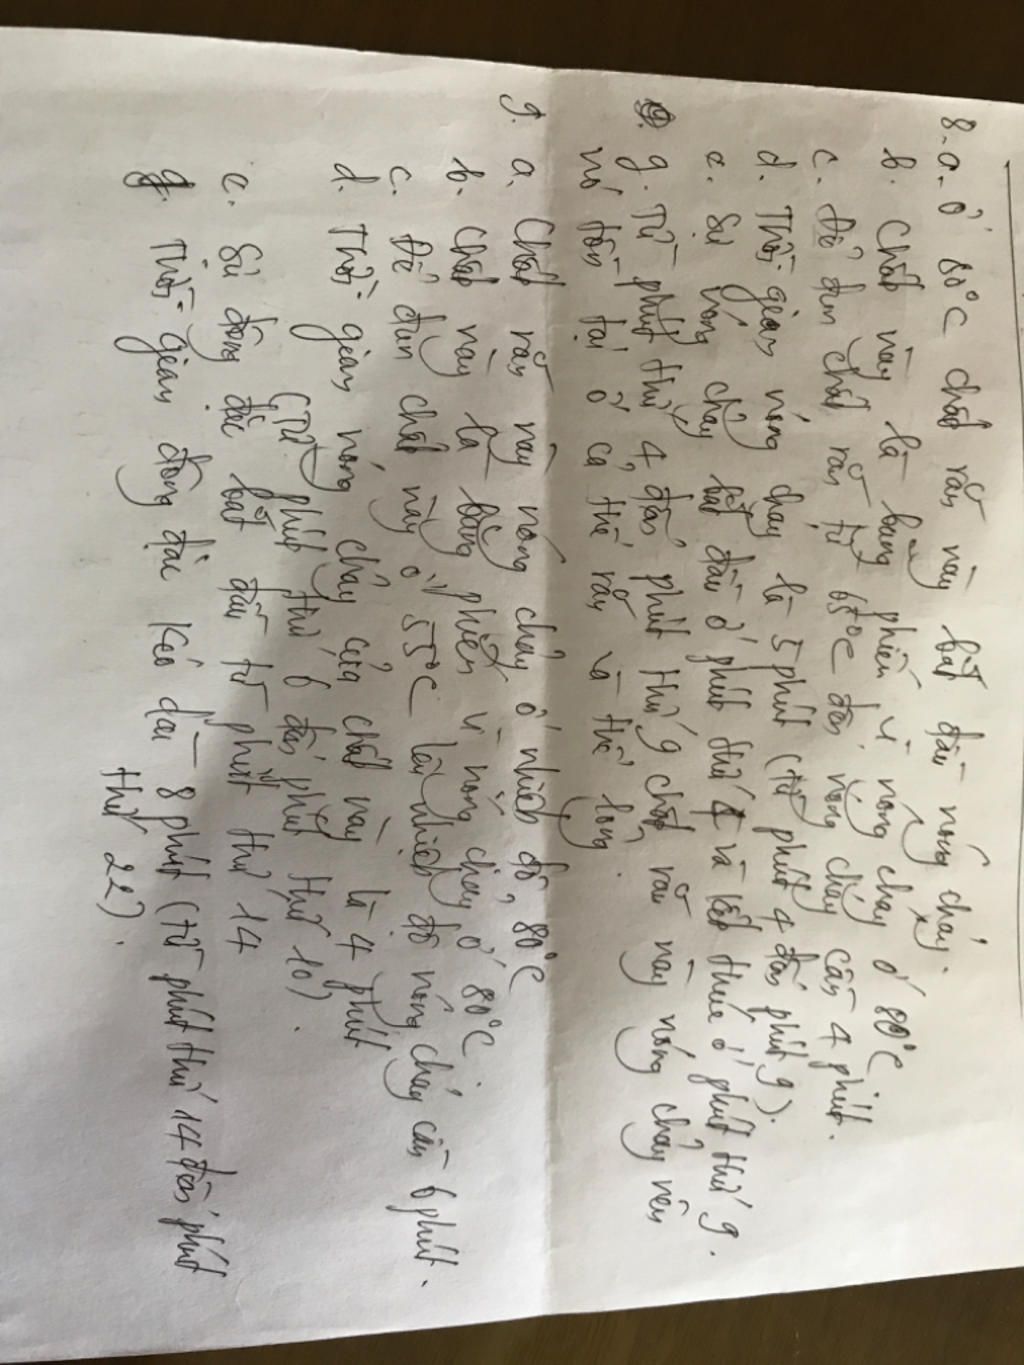 8. a. Ở 80°C chất rắn này bắt đầu nóng chảy.
b. Chất này là băng phiến vì nóng chảy ở 80°C
c. Để đun chất rắn từ 65°C đến nóng chảy cần 4 phút.
d. Thời gian nóng chảy là 5 phút (từ phút 4 đến phút 9).
e. Sự nóng chảy bắt đầu ở phút thứ 4 và kết thúc ở phút thứ 9.
g. Từ phút thứ 4 đến phút thứ 9 chất rắn này nóng chảy nên
nó tồn tại ở cả thể rắn và thể lỏng.
9. a. Chất rắn này nóng chảy ở nhiệt độ 80°C
b. Chất này là băng phiến vì nóng chảy ở 80°C.
c. Để đun chất này ở 55°C lên nhiệt độ nóng chảy cần 6 phút.
d. Thời gian nóng chảy của chất này là 4 phút
(Từ phút thứ 6 đến phút thứ 10).
e. Sự đông đặc bắt đầu từ phút thứ 14
g. Thời gian đông đặc kéo dài 8 phút (từ phút thứ 14 đến phút
thứ 22).